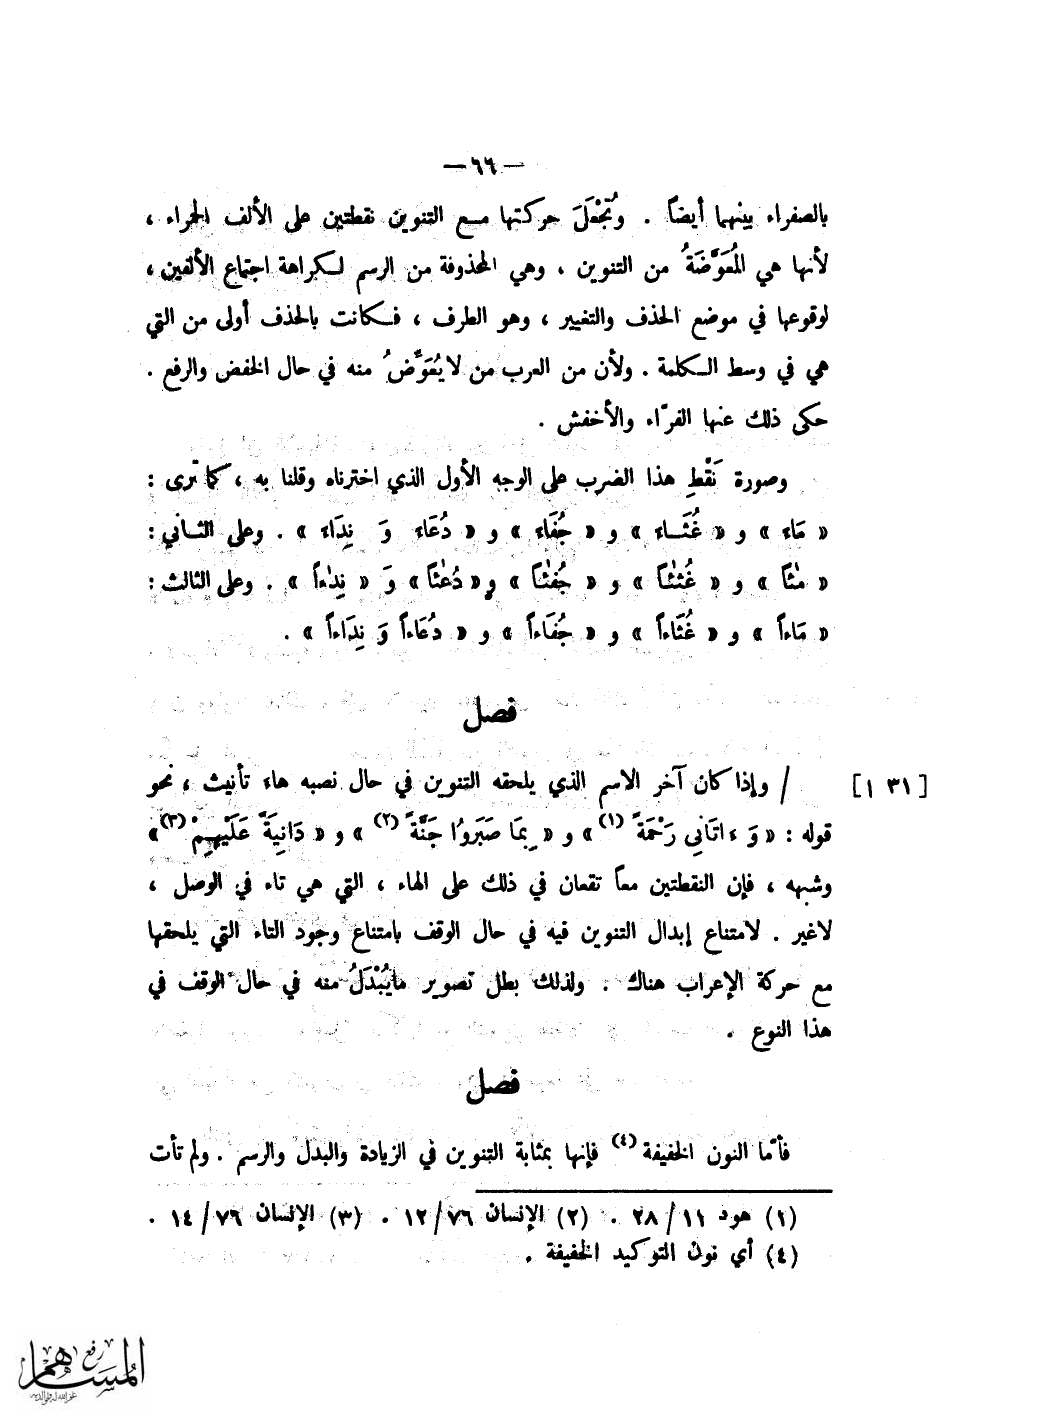 — ٦٦ —
بالصفراء بينهما أيضاً . وتُجْعَلَ حركتها مع التنوين نقطتين على الألف الحمراء ،
لأنها هي المُعَوَّضَةُ من التنوين ، وهي المحذوفة من الرسم لكراهة اجتماع الألفين ،
لوقوعها في موضع الحذف والتغيير ، وهو الطرف ، فكانت بالحذف أولى من التي
هي في وسط الكلمة . ولأن من العرب من لا يُعَوِّضُ منه في حال الخفض والرفع .
حكى ذلك عنها الفرّاء والأخفش .
وصورة نَقْطِ هذا الضرب على الوجه الأول الذي اخترناه وقلنا به ، كما ترى :
« مَاءً » و « غُثَاءً » و « جُفَاءً » و « دُعَاءً وَ نِدَاءً » . وعلى الثاني :
« مٰئاً » و « غُثٰئاً » و « جُفٰئاً » و « دُعٰئاً » وَ « نِدٰءاً » . وعلى الثالث :
« مَاءاً » و « غُثَاءاً » و « جُفَاءاً » و « دُعَاءاً وَ نِدَاءاً » .
فصل
[ ٣١ ا ] / وإذا كان آخر الاسم الذي يلحقه التنوين في حال نصبه هاء تأنيث ، نحو
قوله : « وَءَاتَانِى رَحْمَةً (١) » و « بِمَا صَبَرُوا جَنَّةً (٢) » و « دَانِيَةً عَلَيْهِمْ (٣) »
وشبهه ، فإن النقطتين معاً تقعان في ذلك على الهاء ، التي هي تاء في الوصل ،
لاغير . لامتناع إبدال التنوين فيه في حال الوقف بامتناع وجود التاء التي يلحقها
مع حركة الإعراب هناك . ولذلك بطل تصوير مايُبْدَلُ منه في حال الوقف في
هذا النوع .
فصل
فأمّا النون الخفيفة (٤) فإنها بمثابة التنوين في الزيادة والبدل والرسم . ولم تأت
(١) هود ١١/ ٢٨ . (٢) الإنسان ٧٦/ ١٢ . (٣) الإنسان ٧٦/ ١٤ .
(٤) أي نون التوكيد الخفيفة .
رفع
المساهم
غفر الله له ولوالديه